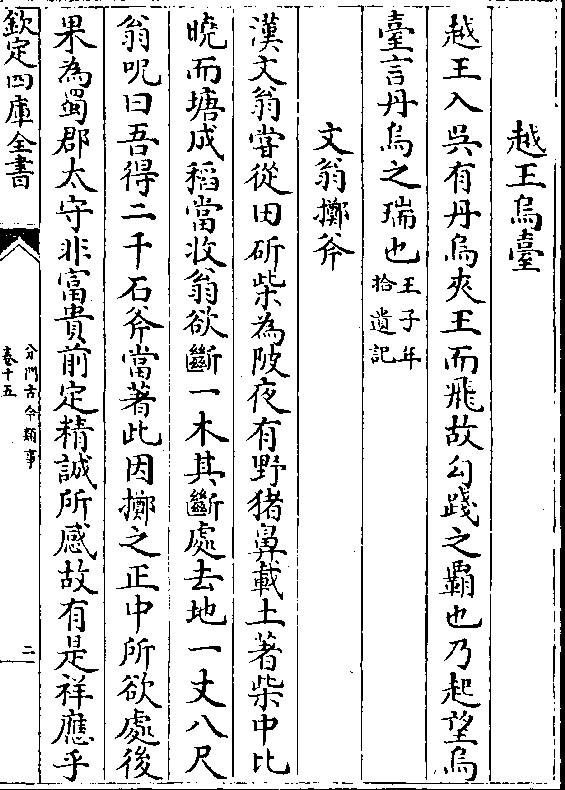 越王烏臺
越王入吳有丹烏夾王而飛故勾踐之霸也乃起望烏
臺言丹烏之瑞也王子年
拾遺記
文翁擲斧
漢文翁嘗從田斫柴為陂夜有野猪鼻載土著柴中比
曉而塘成稻當收翁欲斷一木其斷處去地一丈八尺
翁呪曰吾得二千石斧當著此因擲之正中所欲處後
果為蜀郡太守非富貴前定精誠所感故有是祥應乎
欽定四庫全書
分門古今類事
卷十五
二